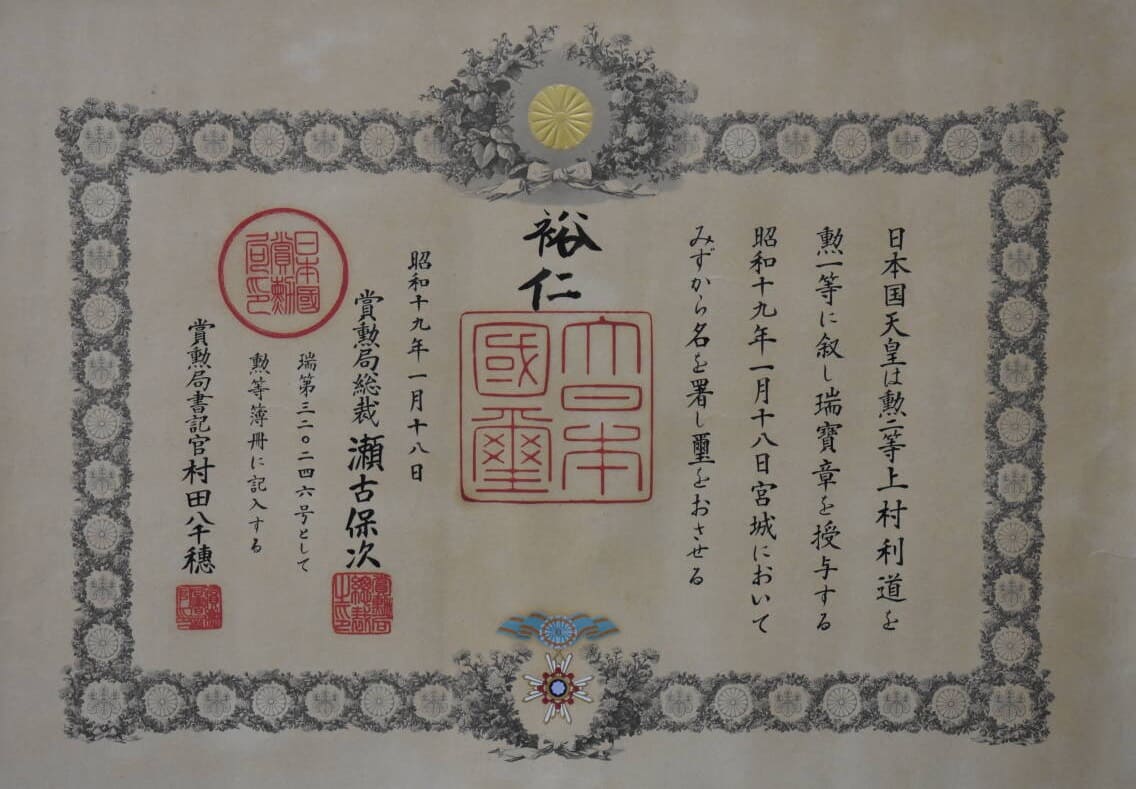 日本国天皇は勲二等上村利道を
勲一等に叙し瑞寶章を授与する
昭和十九年一月十八日宮城において
みずから名を署し璽をおさせる
裕仁
大日本
國璽
昭和十九年一月十八日
賞勲局総裁瀬古保次
瑞第三二〇二四六号として
勲等簿冊に記入する
賞勲局書記官村田八千穂
日本國
賞勲
局印
賞勲局
総裁
之印